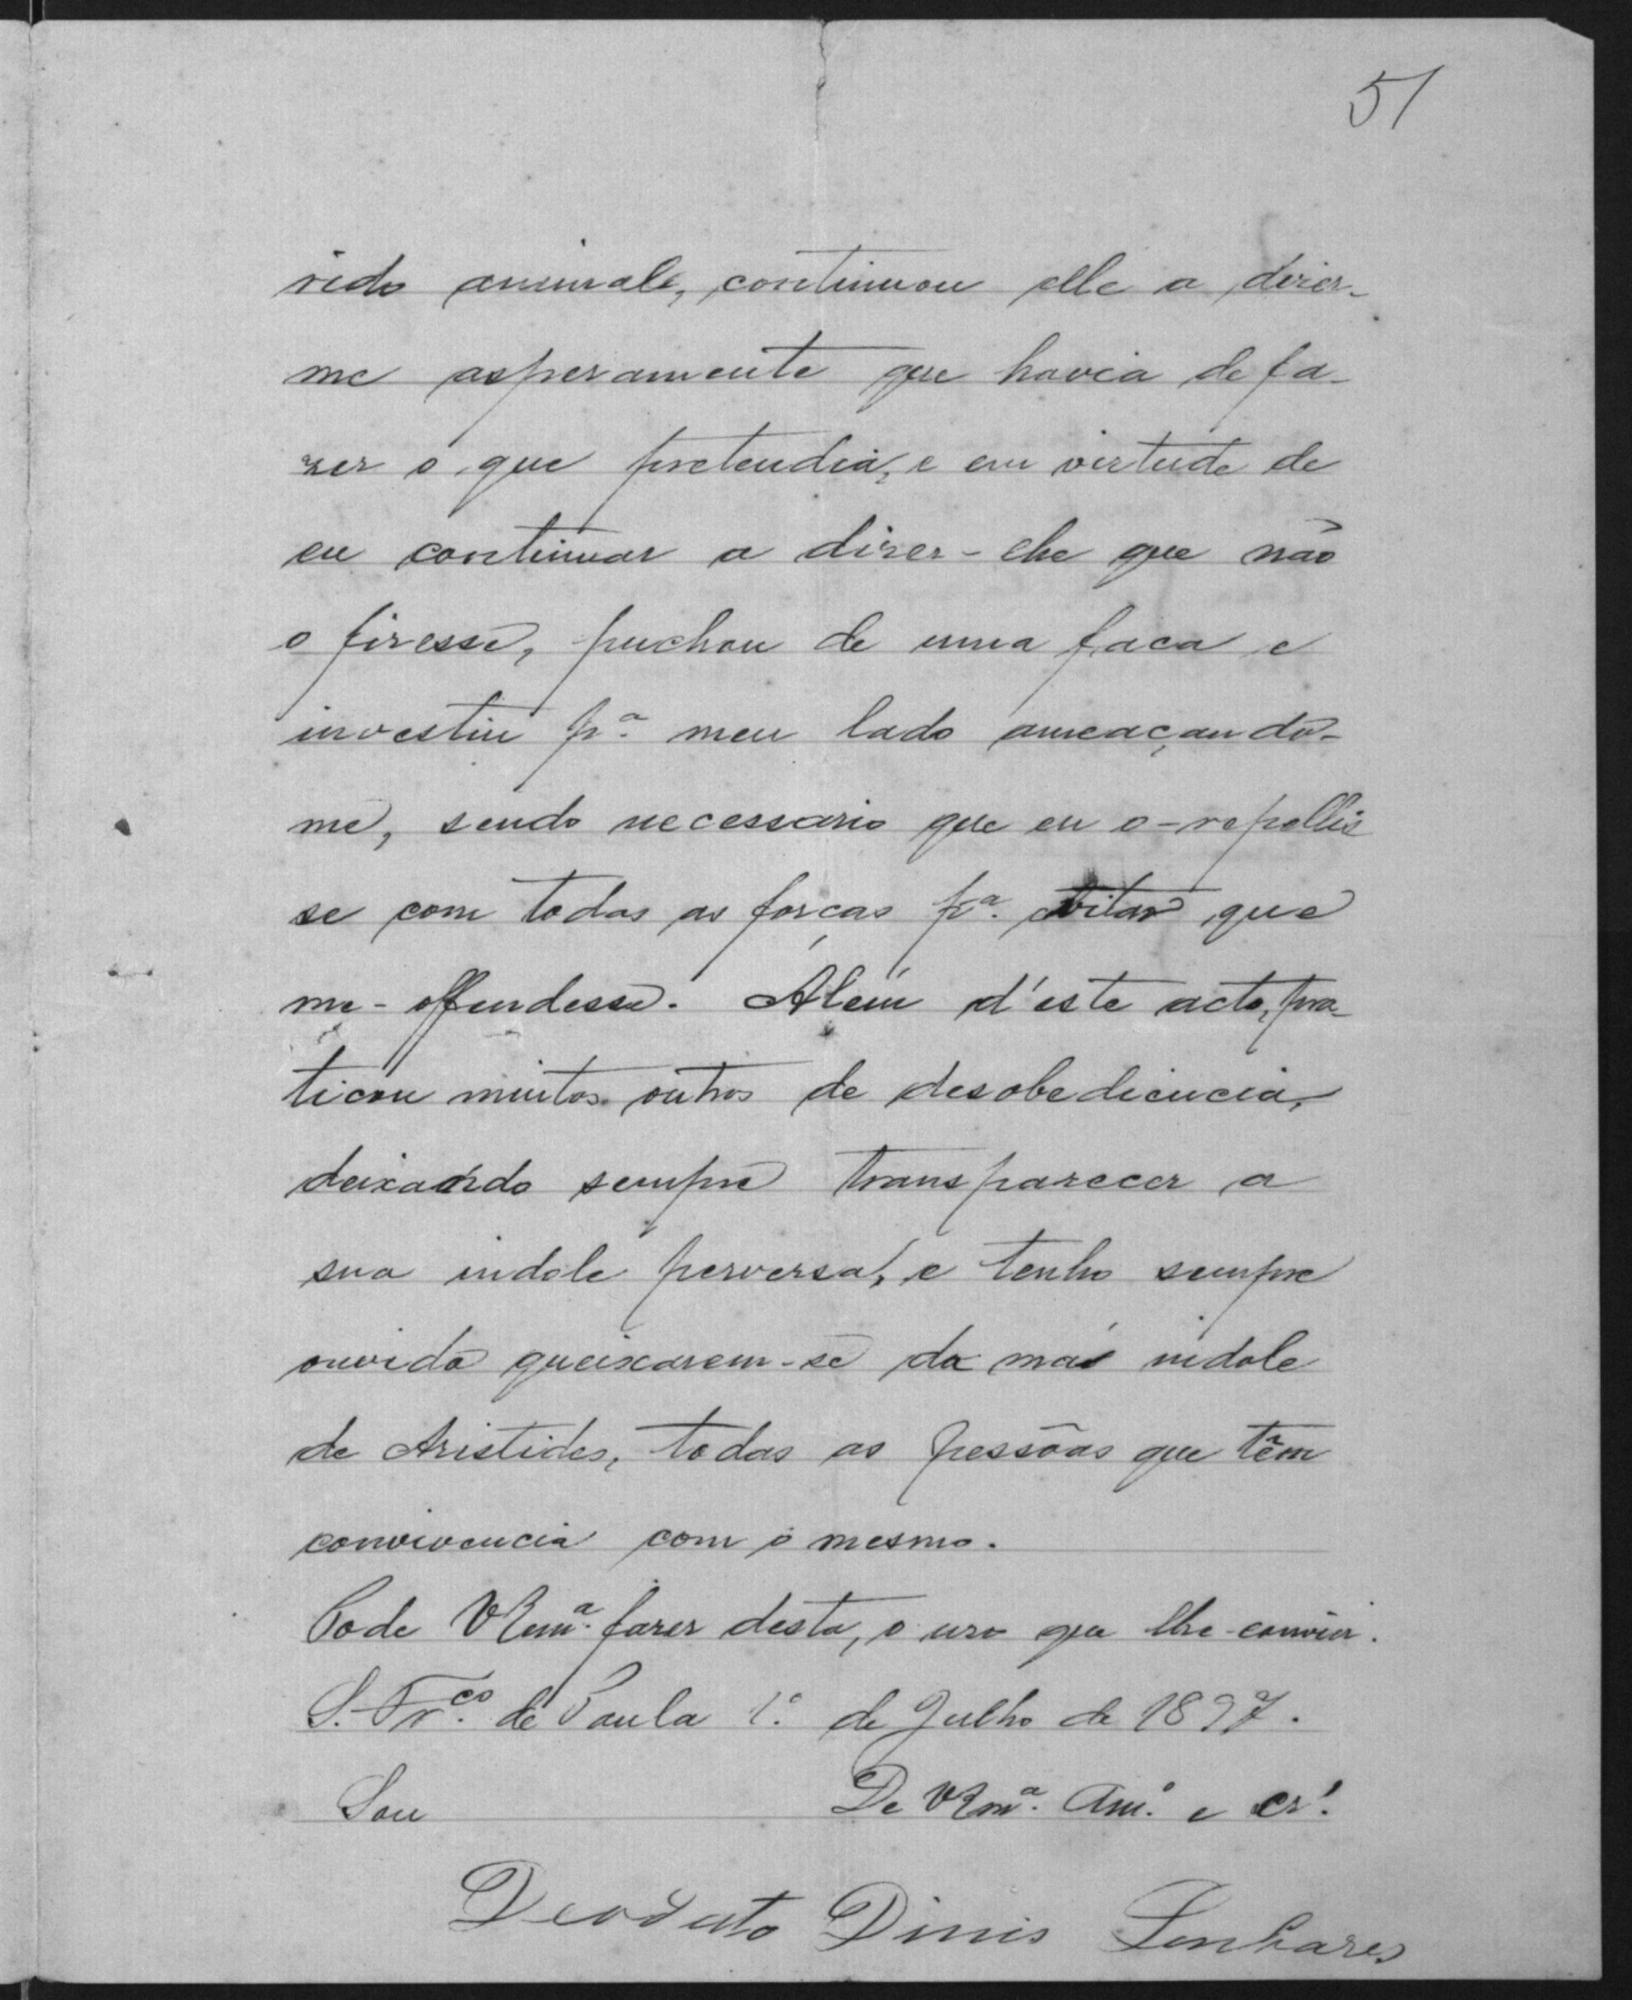 51
rido animale, continuou elle a dizer-
me asperamente que havia de fa-
zer o que pretendia, e em virtude de
eu continuar a dizer-lhe que não
o fizesse, puchou de uma faca e
investiu pª. meu lado ameaçando-
me, sendo necessario que eu o-repellis
se com todas as forcas pª. evitar que
me-offendesse. Além d'este acto, pra-
ticou muitos outros de desobediencia,
deixando sempre transparecer a
sua indole perversa, e tenho sempre
ouvido queixarem-se da má indole
de Aristides, todas as pessôas que têm
convivencia com o mesmo.
Pode VRemª. fazer desta, o uso que lhe-convier.
S. Frᶜᵒ. de Paula 1º. de Julho de 1897.
Sou De VRmª. Amº. e crº.
Deodato Dinis Linhares